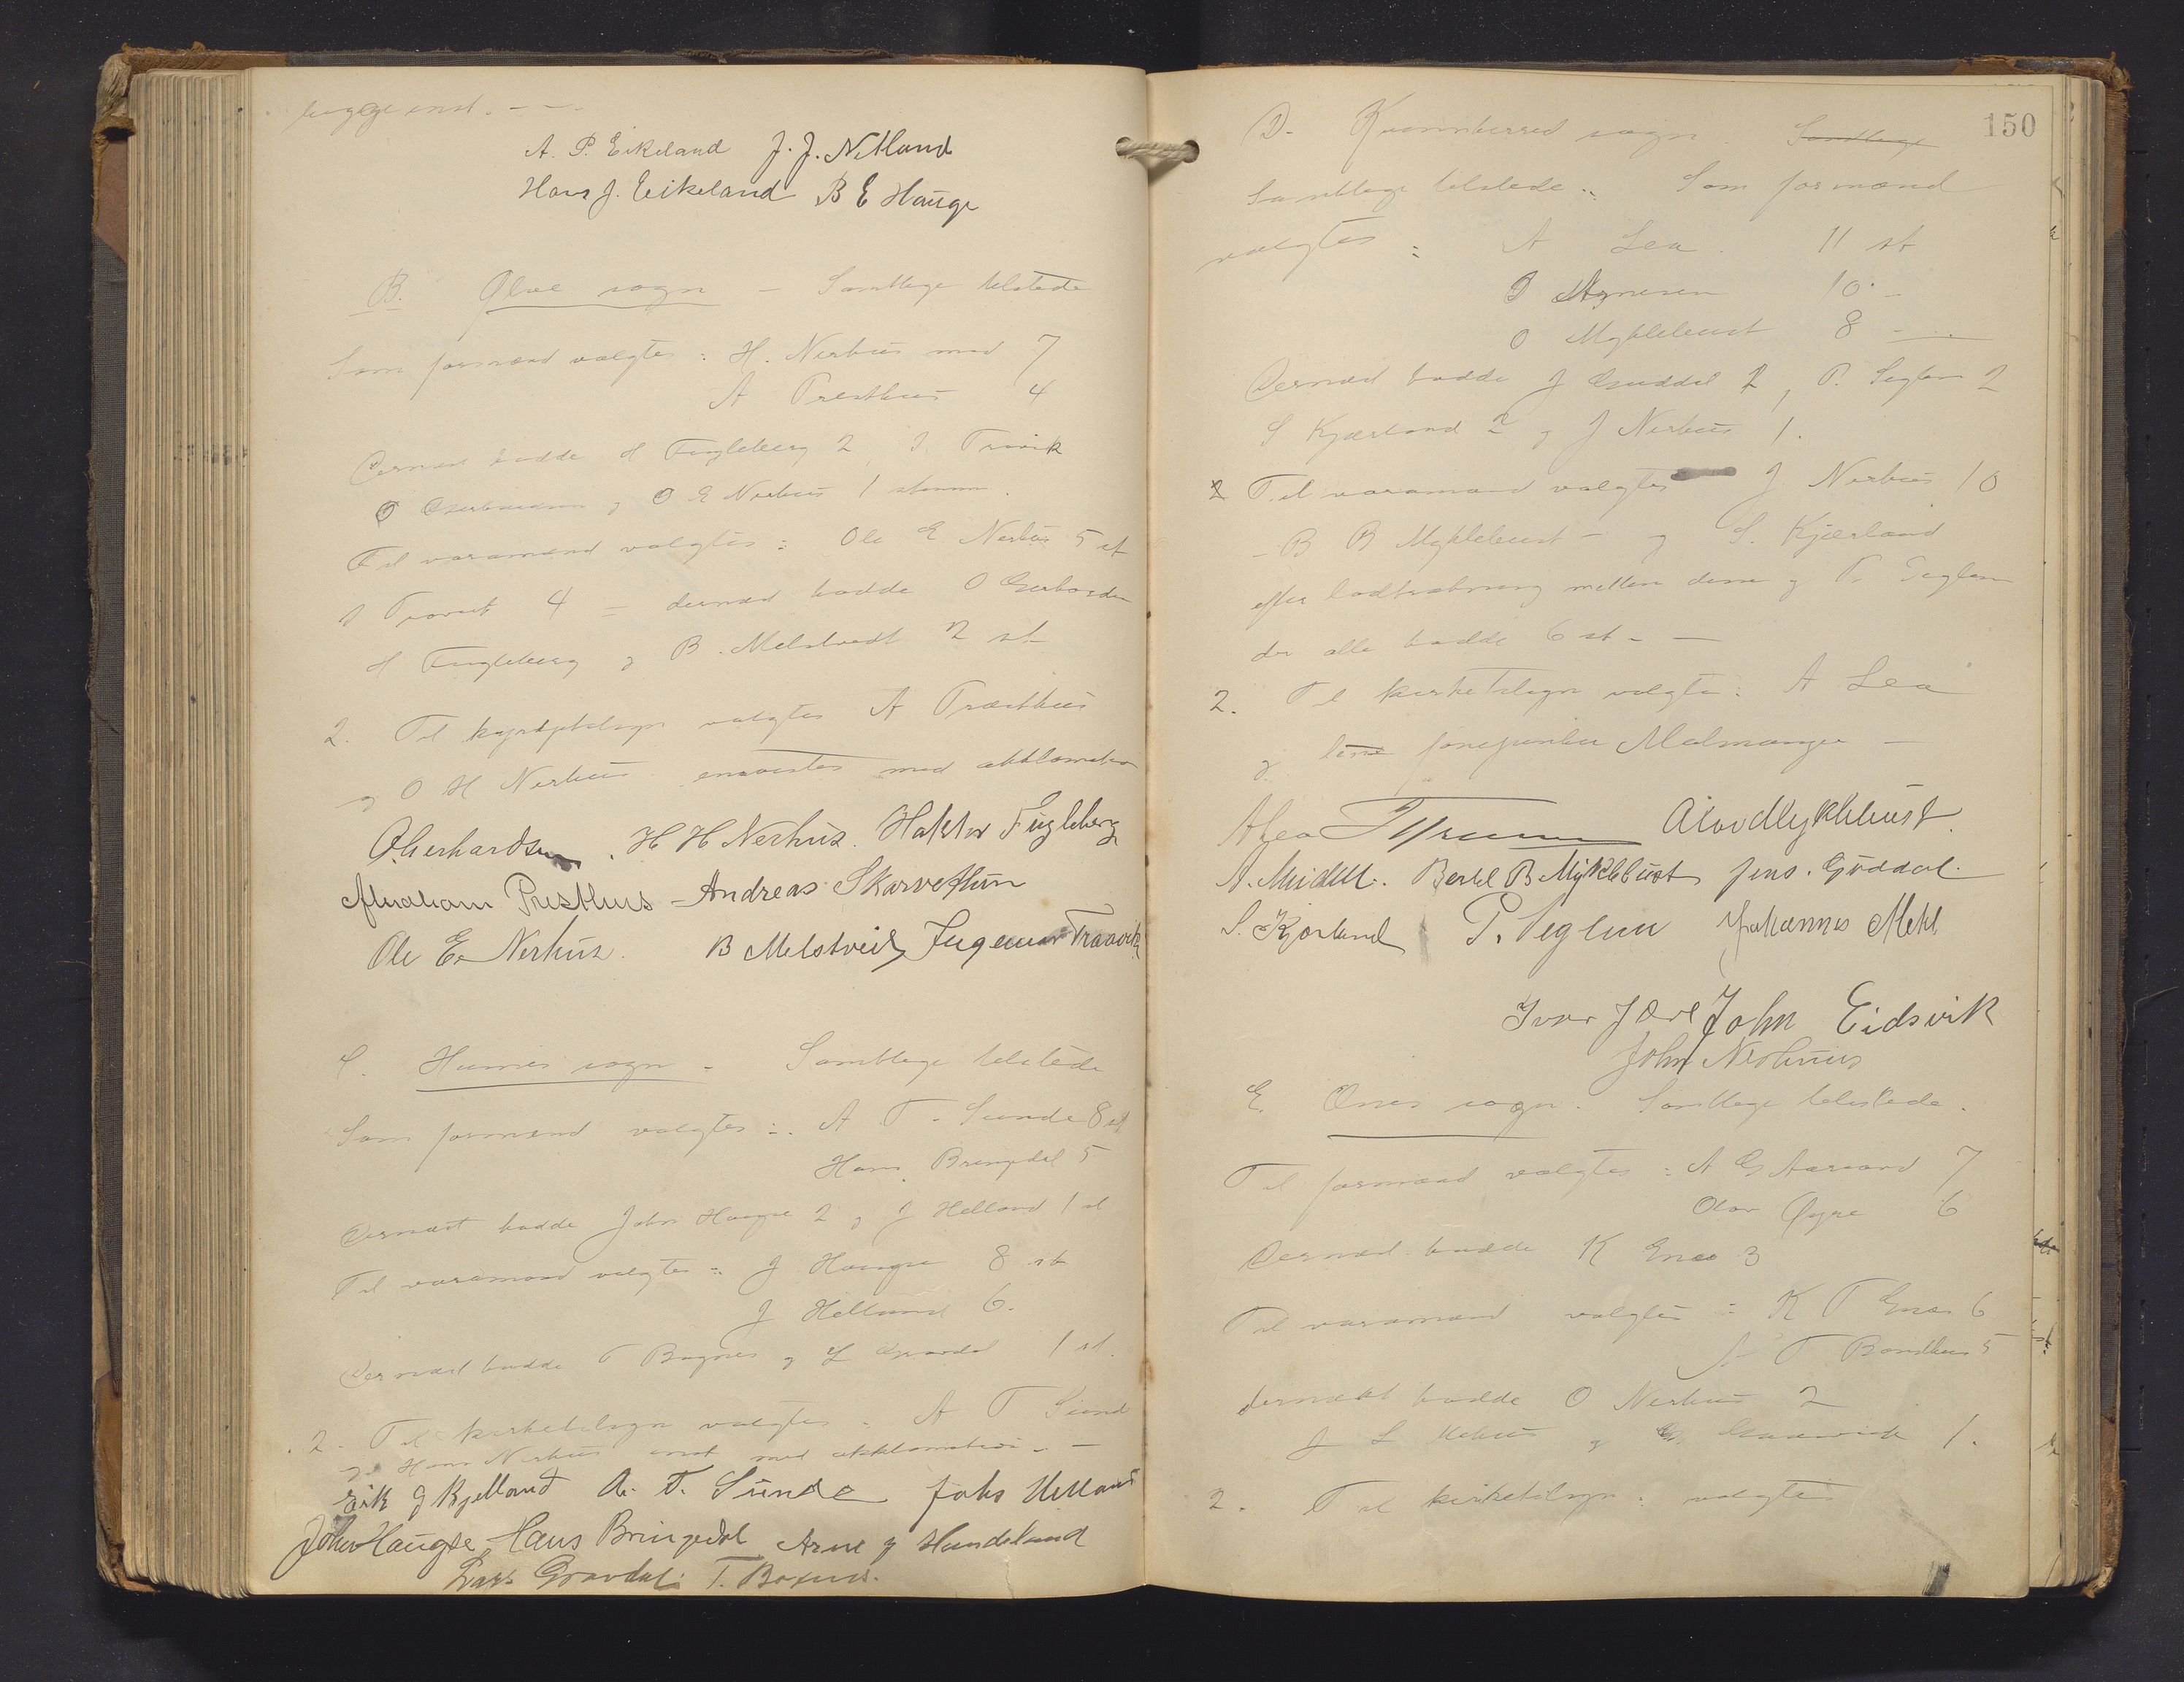 begge enst. - - -
A. P. Eikeland J. J. Netland
Hans J. Eikeland B E Hauge
B. Ølve sogn - Samtlige tilstede
Som formænd valgtes : H. Nerhus med 7
A Presthus 4
Dernæst hadde H Fugleberg 2, I. Travik
O Gerhardsen og O E Nerhus 1 stemme.
Til varamænd valgtes : Ole E. Nerhus 5 st
I Travik 4 = dernæst hadde O Gerhardsen
H Fugleberg og B. Melstvedt 2 st
2. Til kirketilsyn valgtes A Præsthus
og O H Nerhus enst med akklamation
O. Gerhardsen. H H Nerhus. Haktor Fugleberg
Abraham Presthus - Andreas Skarveflun
Ole E. Nerhus. B Melstveit, Ingemar Traavik
C. Humes sogn - Samtlige tilstede
Som formænd valgtes : A T. Sunde 8 st
Hans Bringedal 5
Dernæst hadde John Haugse 2 og J Helland 1 st
Til varamænd valgtes : J Haugse 8 st
J Helland 6.
Dernæst hadde T Bognes og L Gravdal 1 st.
2. Til kirketilsyn valgtes : A T Sunde
og Hans Nerhus enst med akklamation. -
Eirik J Kjelland A. T. Sunde Johs Helland
John Haugse, Hans Bringedal Arne J Handeland
Lars Gravdal. T. Bognes.
150
D. Kvinnherred sogn. Samtlige
Samtlige tilstede : Som formænd
valgtes : A Lea. 11 st
P Myrmem 10 -
O Myklebust 8 -
Dernæst hadde J Guddal 2, P. Seglem 2
S Kjærland 2 og J Nerhus 1.
2 Til varamænd valgtes J Nerhus 10
- B B Myklebust - og S. Kjærland
efter lodtrækning mellem denne og P. Seglem
der alle hadde 6 st - -
2. Til kirketilsyn valgtes : A Lea
og Malmanger -
A Lea Olav Myklebust.
Bertel B Myklebust Jens. Guddal.
S. Kjærland P. Seglem Johannes Mehl
Ivar Jære John Eidsvik
John Nerhuus
E. Ænes sogn. Samtlige tilstede.
Til formænd valgtes : A G Aarsand 7
Olav Øyre 6
Dernæst hadde K Enes 3
Til varamænd valgtes : K T Enes 6
N T Bondhus 5
dernæst hadde O Nerhus 2
J L og 1.
2. Til kirketilsyn : valgtes